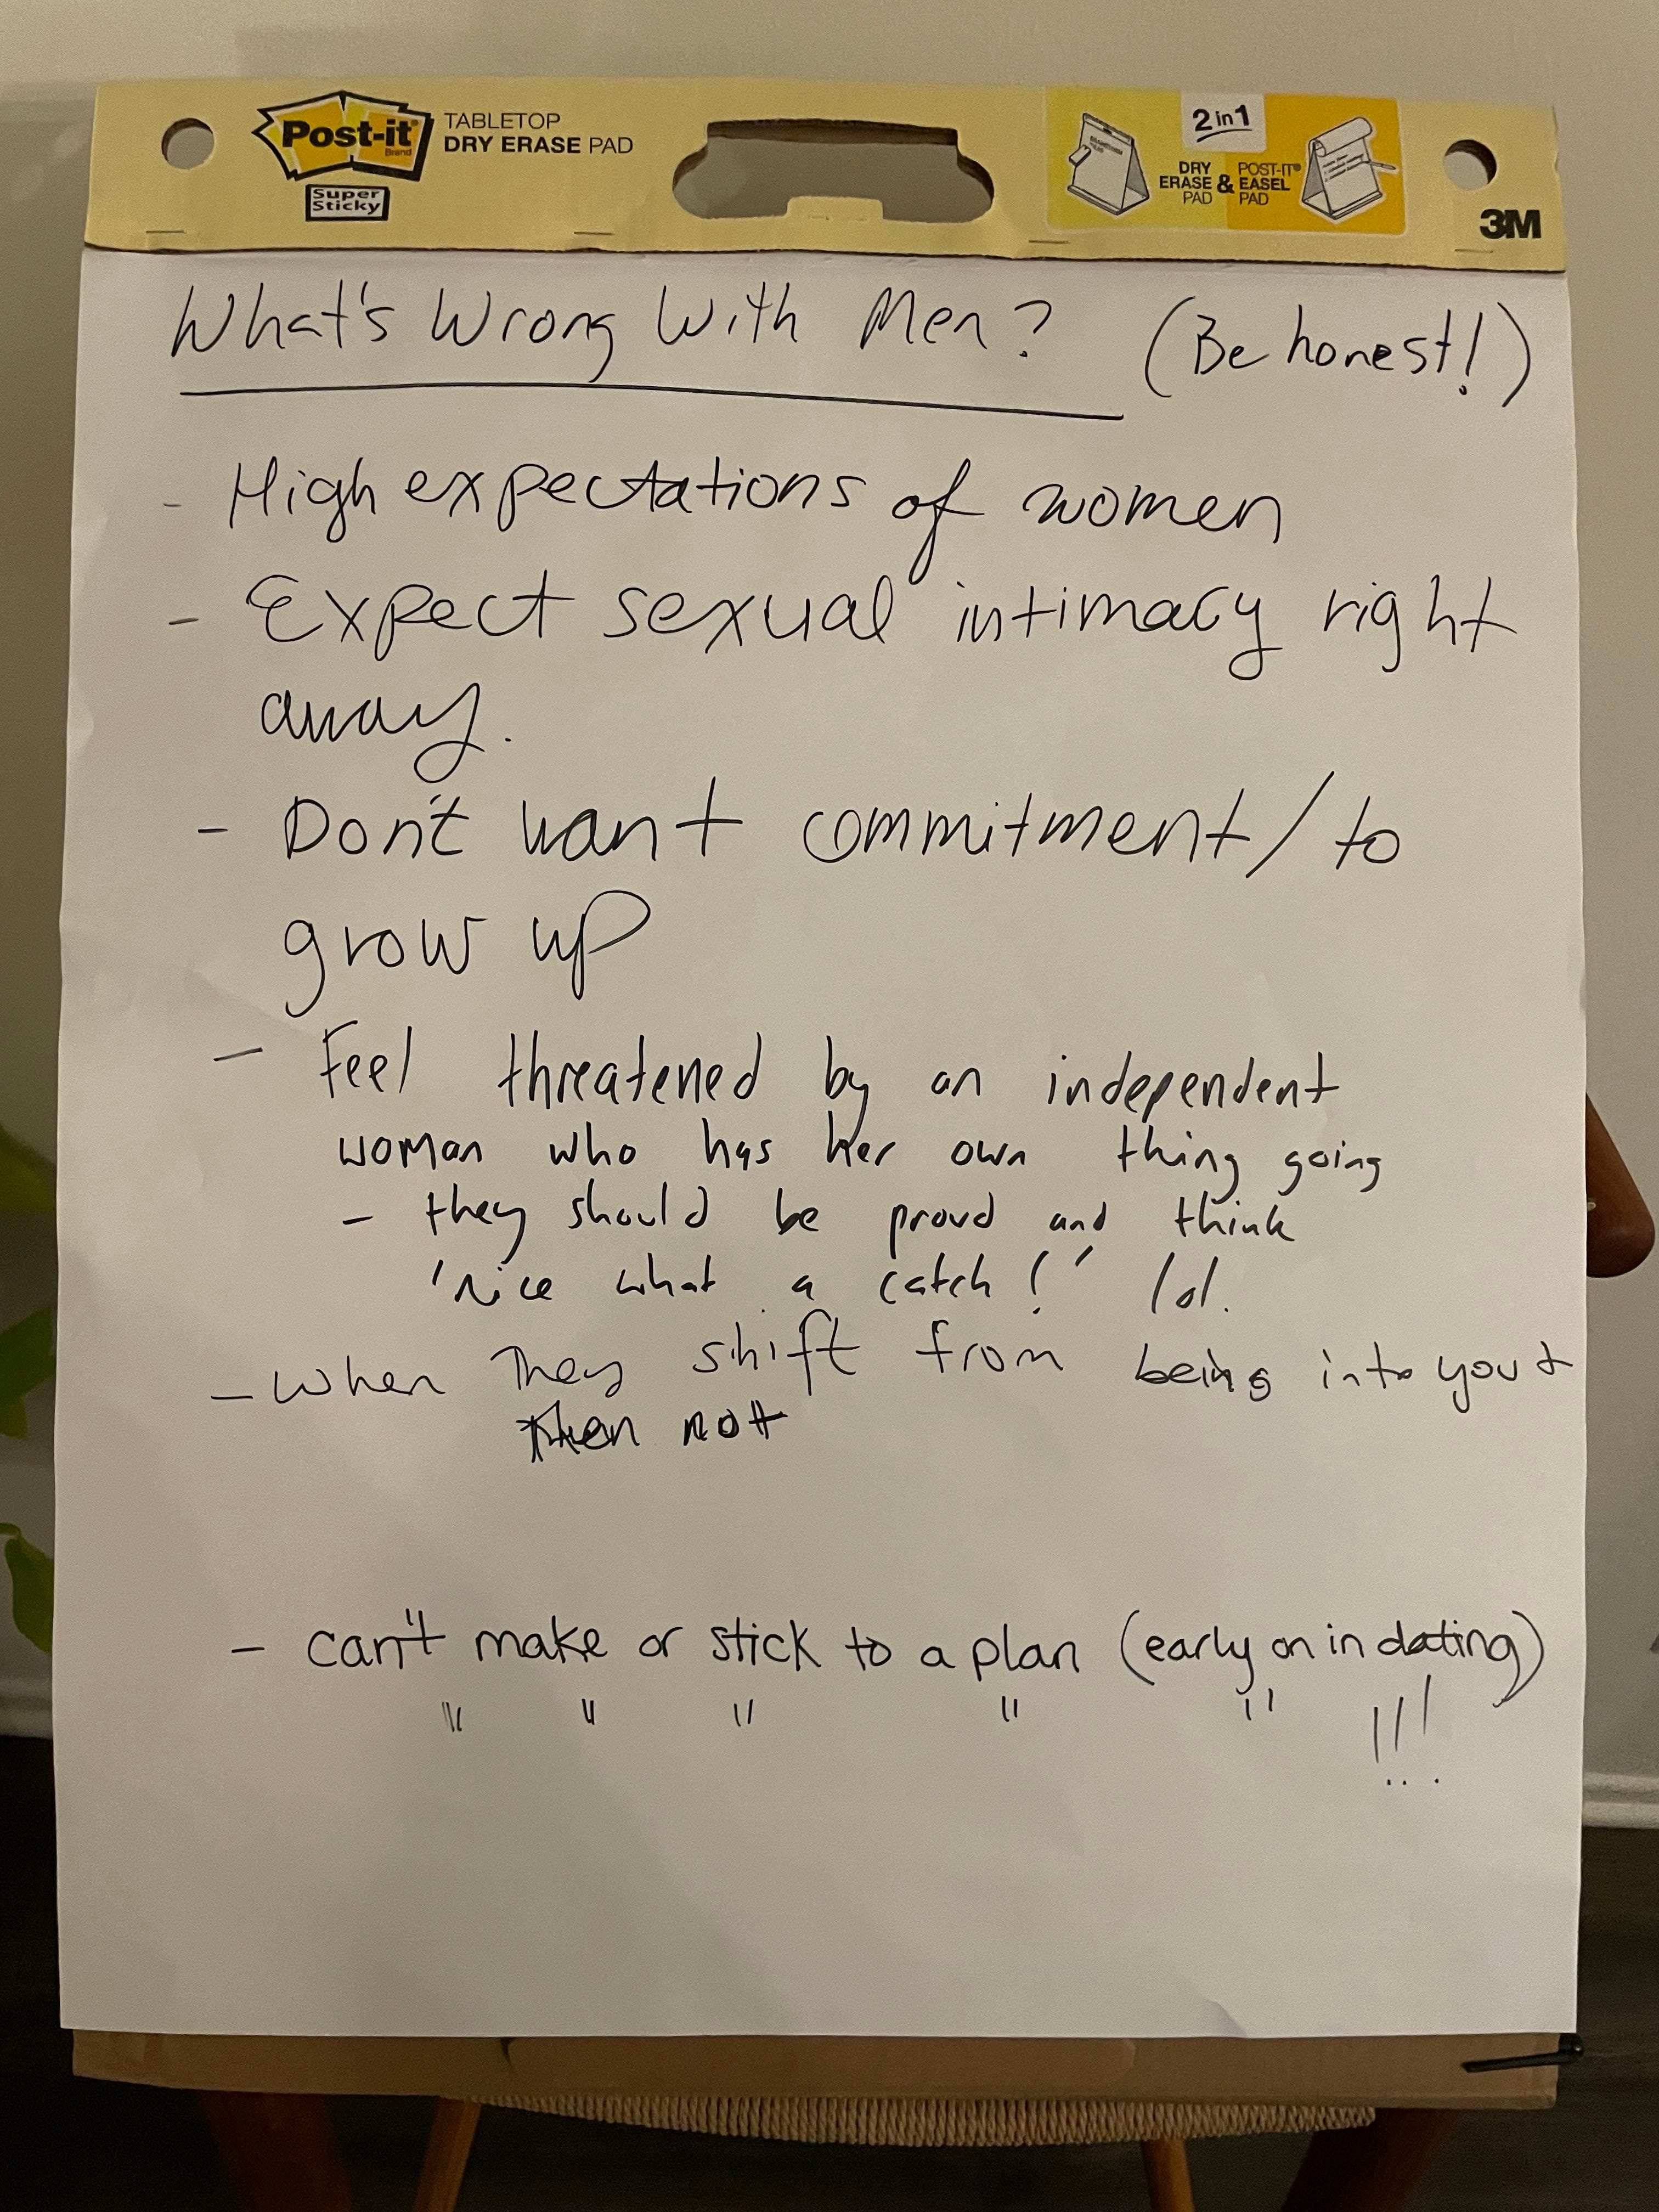 Post-it
Brand
Super
Sticky
TABLETOP
DRY ERASE PAD
2 in 1
DRY
ERASE
PAD
&
POST-IT®
EASEL
PAD
3M
What's Wrong With Men? (Be honest!)
- High expectations of women
- Expect sexual intimacy right
away.
- Don't want commitment/to
grow up
- Feel threatened by an independent
woman who has her own thing going
- they should be proud and think
'nice what a catch!' lol.
- When they shift from being into you +
then not
- can't make or stick to a plan (early on in dating)
" " " " " !!!